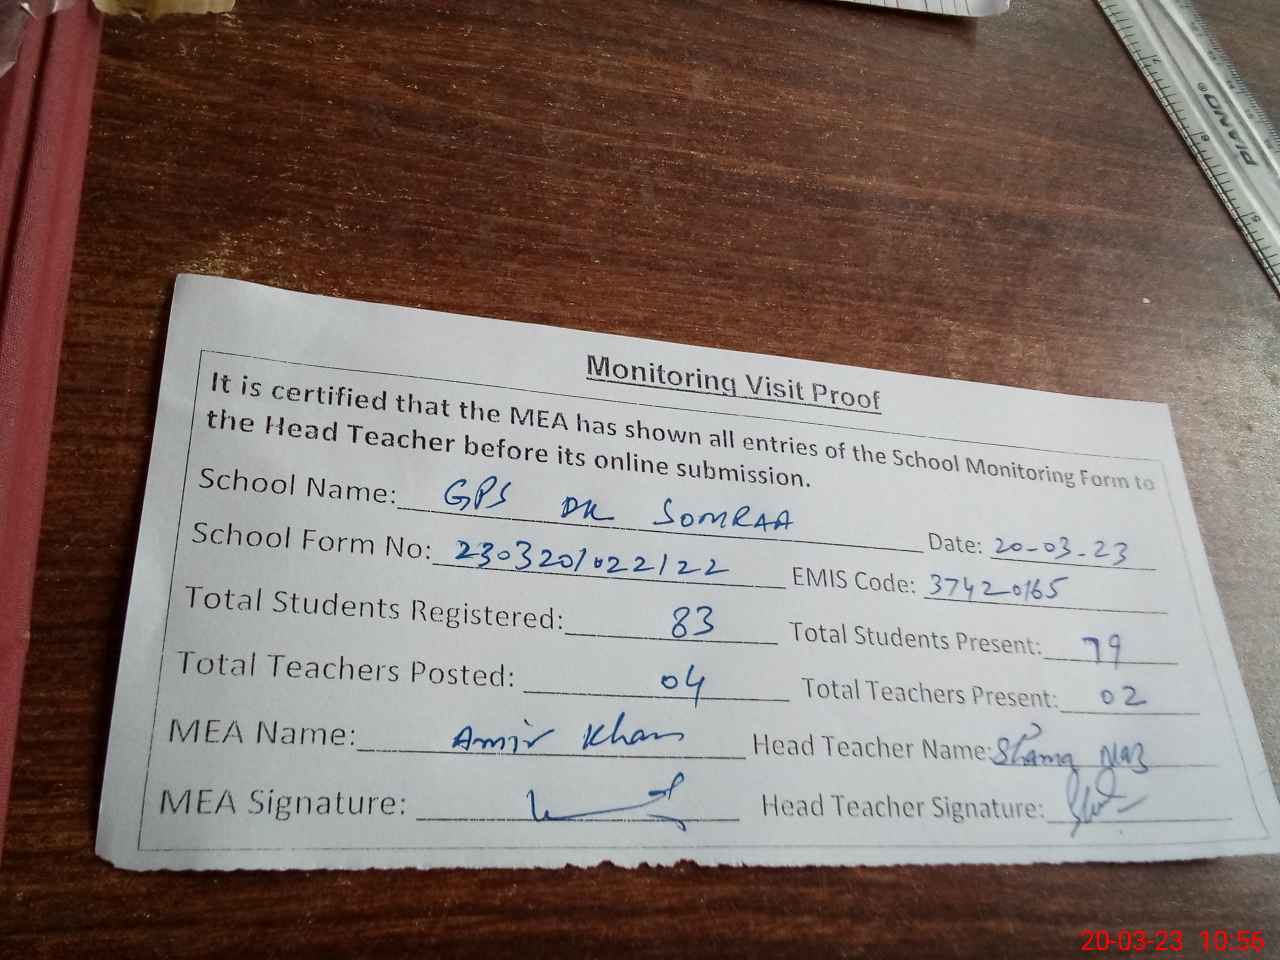 PIANO®
Monitoring Visit Proof
It is certified that the MEA has shown all entries of the School Monitoring Form to
the Head Teacher before its online submission.
School Name: GPS DK SOMRAA
Date: 20-03-23
School Form No: 230320102212 2
EMIS Code: 37420165
Total Students Registered: 83
Total Students Present: 79
Total Teachers Posted: 04
Total Teachers Present: 02
MEA Name: Amir Khan
Head Teacher Name: Shama Naz
MEA Signature:
Head Teacher Signature:
20-03-23 10:56